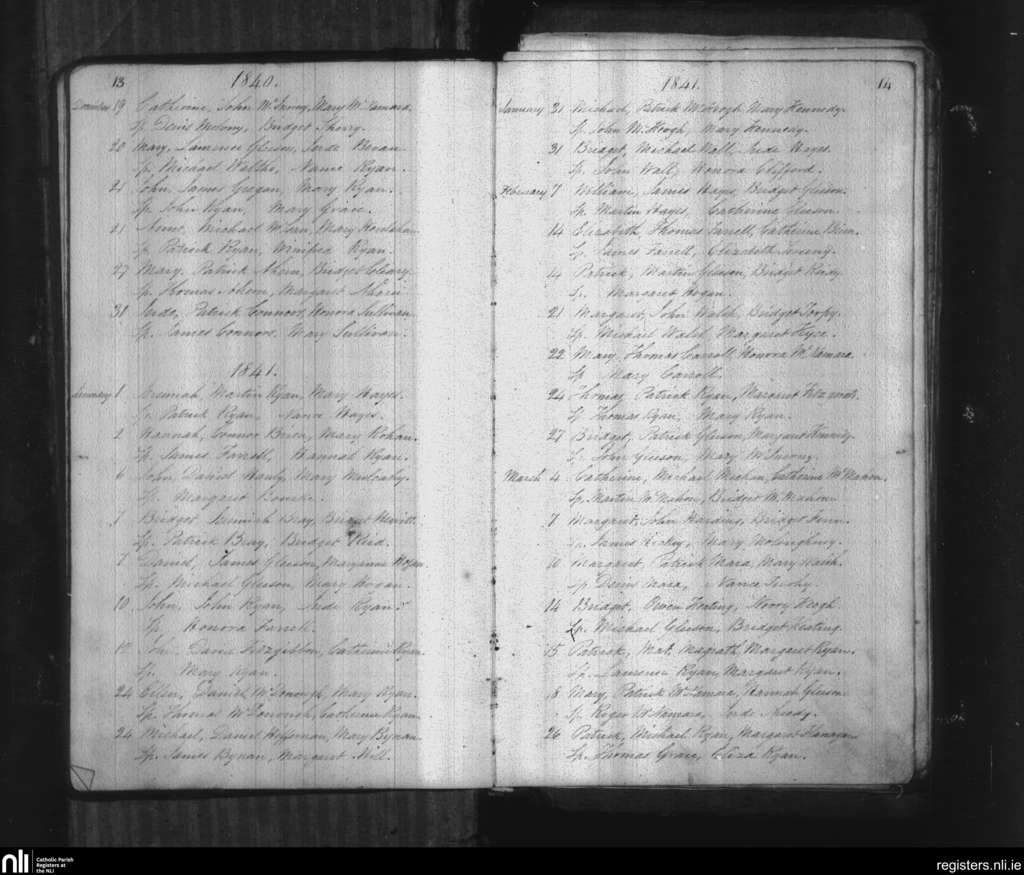 13 1840.
December 19 Catherine, John McInerny, Mary McNamara.
Sp. Denis Molony, Bridget Shorry.
20 Mary, Lawrence Gleeson, Jude Bevan.
Sp. Michael Walthe, Nance Ryan.
21 John, James Grogan, Mary Ryan.
Sp. John Ryan, Mary Grace.
21 Anne, Michael Mary
Sp. Patrick Ryan, Winifred Ryan.
27 Mary, Patrick Ahern, Bridget Cleary.
Sp. Thomas Ahern, Margaret Ahern
31 Jude, Patrick Connors, Honora Sullivan
Sp. James Connors, Mary Sullivan.
1841.
January 1 Jeremiah, Martin Ryan, Mary Hayes.
Sp. Patrick Ryan, Nance Hayes.
2 Hannah, Connor Brien, Mary Rohan.
Sp. James Farrell, Hannah Ryan.
6 John, David Mary Mulcahy.
Sp. Margaret Bourke.
7 Bridget, Jeremiah Bray, Bridget Hewitt.
Sp. Patrick Bray, Bridget
7 Daniel, James Gleeson, Maryanne Hogan.
Sp. Michael Gleeson, Mary Hogan.
10 John, John Ryan, Jude Ryan.
Sp. Honora Farrell.
John, David Fitzgibbon, Catherine Ryan.
Sp. Mary Ryan.
24 Ellen, Daniel McDonough, Mary Ryan.
Sp. Thomas McDonough, Catherine Ryan
24 Michael, Daniel Heffernan, Mary Bynan
Sp. James Bynan, Margaret
1841. 14
January 31 Michael, Patrick McKeogh, Mary Kennedy.
Sp. John McKeogh, Mary Kennedy.
31 Bridget, Michael Wall, Jude Hayes.
Sp. John Wall, Honora Clifford.
February 7 William, James Hayes, Bridget Gleeson.
Sp. Martin Hayes, Catherine Gleeson.
14 Elizabeth, Thomas Farrell, Catherine
Sp. James Farrell, Elizabeth
14 Patrick, Martin Gleeson, Bridget Ready
Sp. Margaret Hogan.
21 Margaret, John Walsh, Bridget Torpy.
Sp. Michael Walsh, Margaret
22 Mary, Thomas Carroll, Honora McNamara.
Sp. Mary Carroll.
24 Thomas, Patrick Ryan, Margaret
Sp. Thomas Ryan, Mary Ryan.
27 Bridget, Patrick Gleeson, Margaret Kennedy.
Sp. John Gleeson, Mary McInerny.
March 4 Catherine, Michael Meehan, Catherine McMahon.
Sp. Martin McMahon, Bridget McMahon
7 Margaret, John Harding, Bridget Finn.
Sp. James Hickey, Mary
10 Margaret, Patrick Mara, Mary Walsh.
Sp. Denis Mara, Nance
14 Bridget, Owen Keating, Norry Keogh.
Sp. Michael Gleeson, Bridget Keating.
15 Patrick, Mat. Magrath, Margaret Ryan.
Sp. Lawrence Ryan, Margaret Ryan.
18 Mary, Patrick McNamara, Hannah Gleeson
Sp. Roger McNamara, Jude
26 Patrick, Michael Ryan, Margaret Flanagan
Sp. Thomas Grace, Eliza Ryan.
nli Catholic Parish
Registers at
the NLI
registers.nli.ie